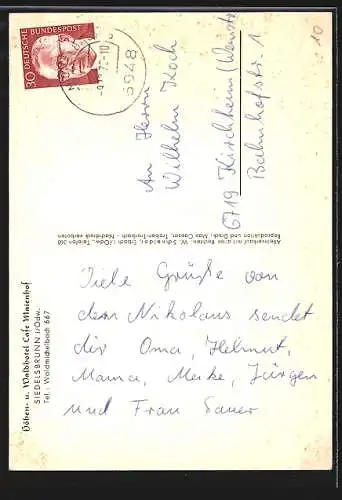 Höhen- u. Waldhotel Cafe Maienhof
SIEDELSBRUNN i/Odw.
Tel.: Waldmichelbach 667
Viele Grüße von
dem Nikolaus sendet
dir Oma, Helmut,
Mama, Meike, Jürgen
und Frau Sauer
Alleinverkauf mit allen Rechten: W. Schneider, Erbach i/Odw., Telefon 368
Reproduktion und Druck Max Caesar, Traben-Trarbach - Nachdruck verboten
30 DEUTSCHE BUNDESPOST
6948
An Herrn
Wilhelm Koch
6719 Kirchheim (Weinstr.
Bahnhofstr. 1
10